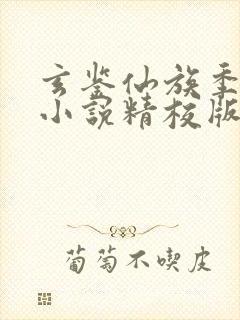 玄鉴仙族季
小说精校版
葡萄不喫皮